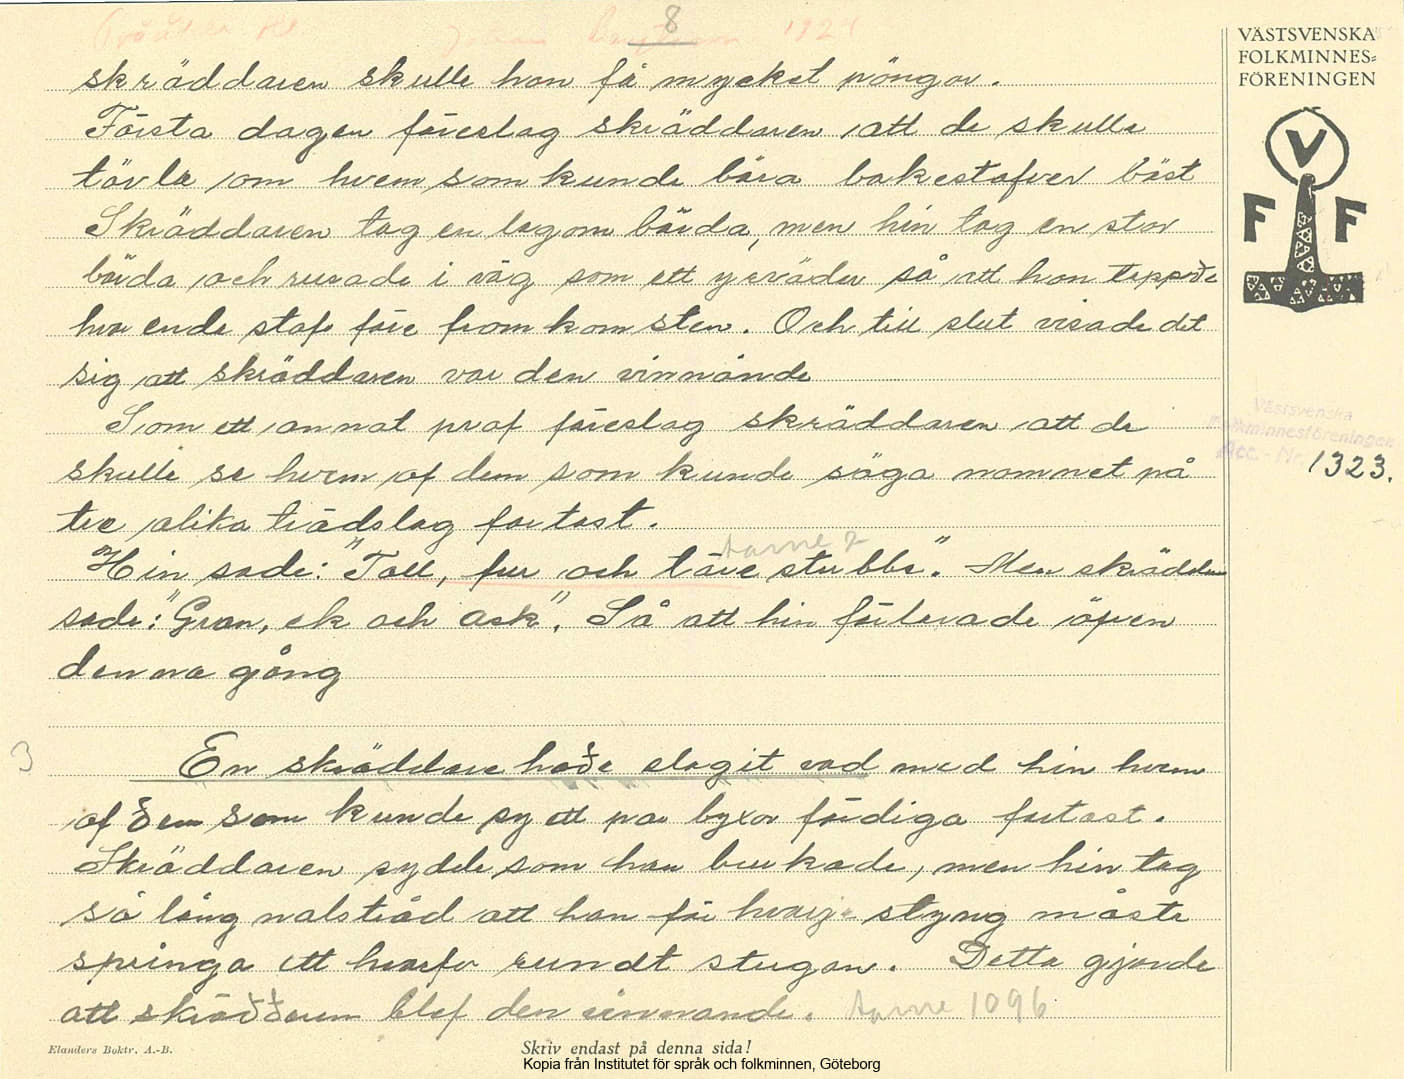 8
1924
VÄSTSVENSKA
FOLKMINNES=
FÖRENINGEN
V
F F
skräddaren skulle han få mycket pängar.
Första dagen föreslog skräddaren att de skulle
tävla om hvem som kunde bära bakestafver bäst
Skräddaren tog en lagom börda, men hin tog en stor
börda och rusade i väg som ett yrväder så att han tappade
hva enda staf före framkomsten. Och till slut visade det
sig att skräddaren var den vinnande
Som ett annat prof föreslog skräddaren att de
skulle se hvem af dem som kunde säga namnet på
tre olika trädslag fortast.
Västsvenska
Folkminnesföreningen
Acc. - Nr. 1323.
Aarne ?
Hin sade: "Tall, fur och töre stubbe". Men skräddaren
sade: "Gran, ek och ask". Så att hin förlorade äfven
denna gång
3
En skräddare hade slagit vad med hin hvem
af dem som kunde sy ett par byxor färdiga fortast.
Skräddaren sydde som han brukade, men hin tog
så lång nålstråd att han för hvarje styng måste
springa ett hvarf rundt stugan. Detta gjorde
att skräddaren blef den vinnande. Aarne 1096
Elanders Boktr. A.-B.
Skriv endast på denna sida!
Kopia från Institutet för språk och folkminnen, Göteborg